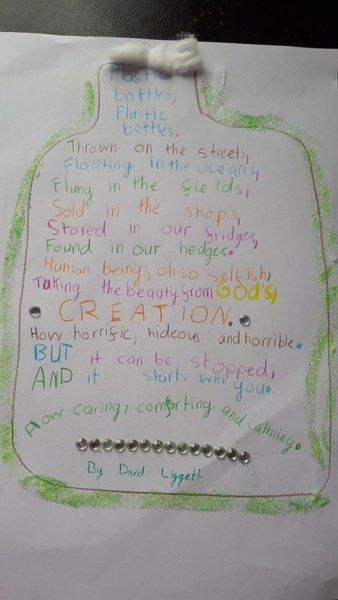 Plastic
bottles,
Plastic
bottles,
Thrown on the streets,
Floating in the oceans,
Flung in the fields,
Sold in the shops,
Stored in our fridges,
Found in our hedges.
Human beings, oh so selfish,
Taking the beauty from GOD'S,
CREATION.
How horrific, hideous and horrible.
BUT it can be stopped,
AND it starts with you.
How caring, comforting and calming.
By David Liggett